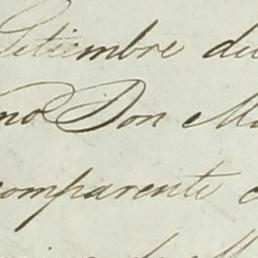 Setiembre de
mo Don Ma
comparente